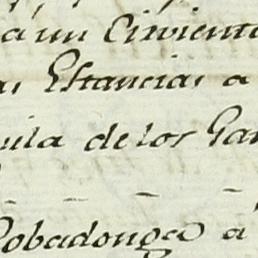 á un Cirviente
as Estancias a
uila de los Gan
Cobadonga á